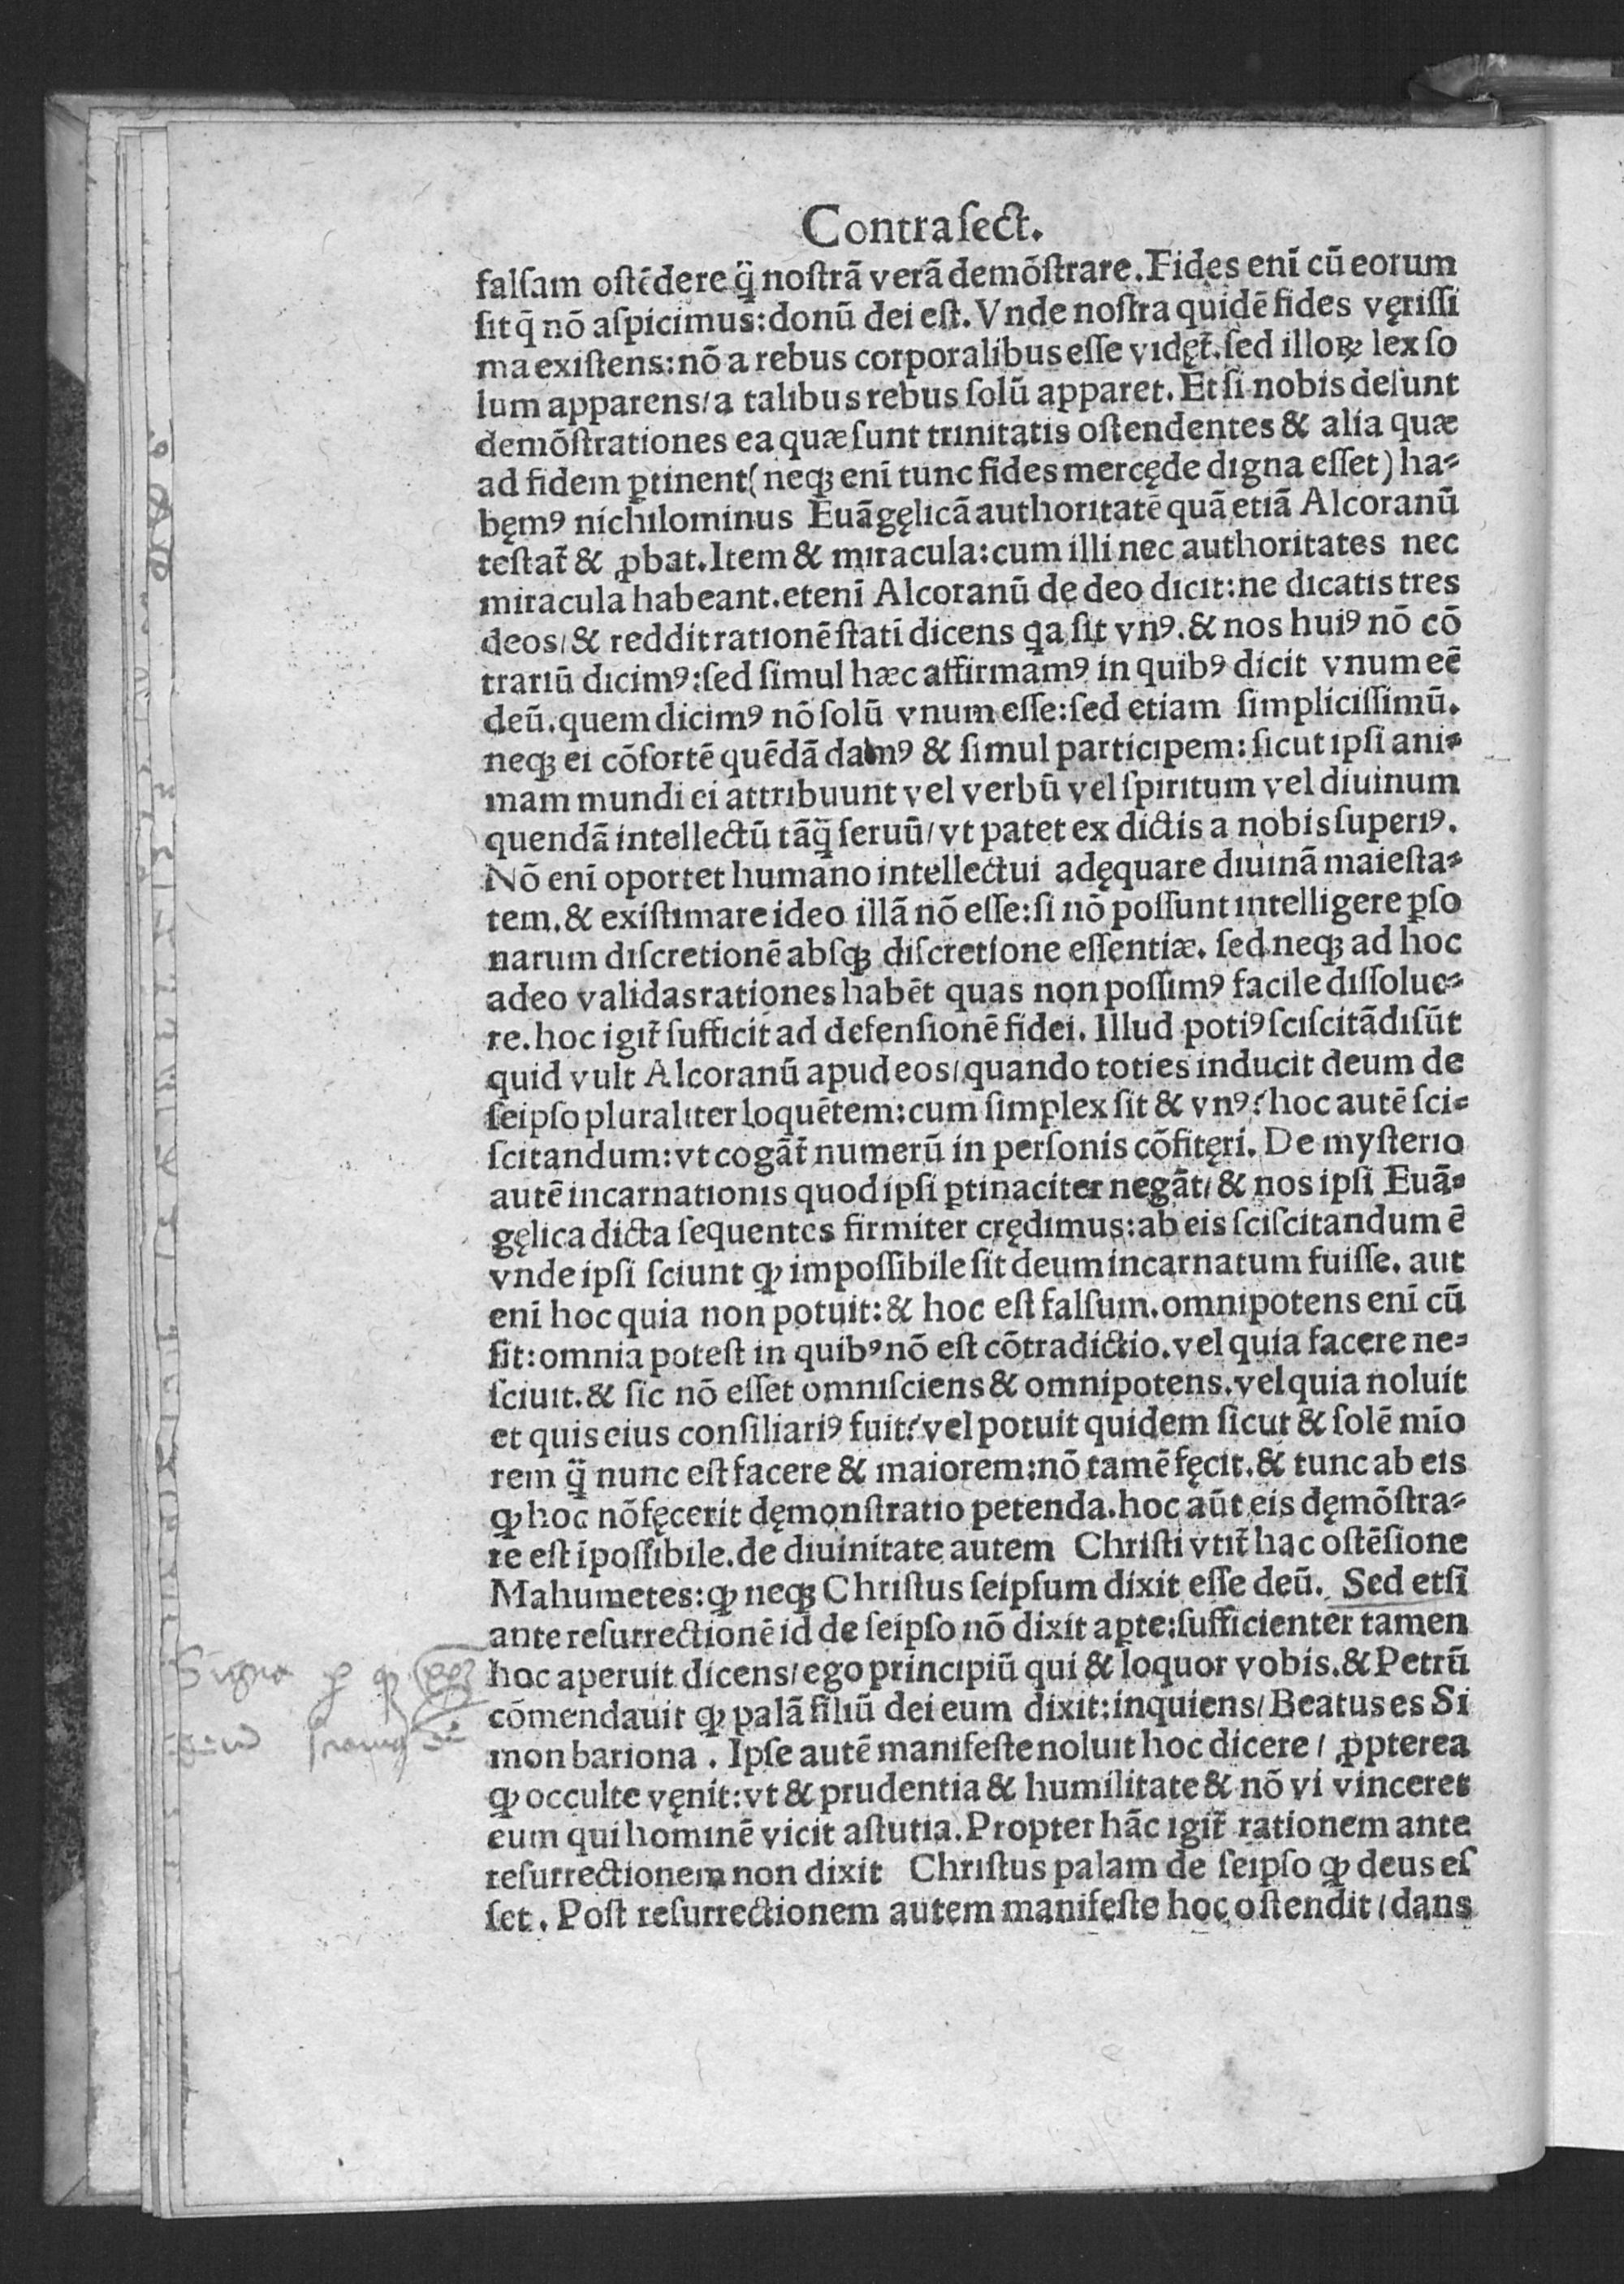 Contra ſect.
falſam oſtẽdere q̈̃ noſtrã verã demõſtrare. Fides enĩ cũ eorum
ſit q̃ nõ aſpicimus: donũ dei eſt. Vnde noſtra quidẽ fides vęriſſi
ma exiſtens: nõ a rebus corporalibus eſſe vidęt̃. ſed illoꝝ lex ſo
lum apparens/ a talibus rebus ſolũ apparet. Et ſi nobis deſunt
demõſtrationes ea quæ ſunt trinitatis oſtendentes & alia quæ
ad fidem ꝑtinent (neqꝫ enĩ tunc fides mercęde digna eſſet) ha⸗
bęmꝰ nichilominus Euãgęlicã authoritatẽ quã etiã Alcoranũ
teſtat̃ & ꝓbat. Item & miracula: cum illi nec authoritates nec
miracula habeant. etenĩ Alcoranũ de deo dicit: ne dicatis tres
deos/ & reddit rationẽ ſtatĩ dicens qa ſit vnꝰ. & nos huiꝰ nõ cõ
trariũ dicimꝰ: ſed ſimul hæc affirmamꝰ in quibꝰ dicit vnum eẽ
deũ. quem dicimꝰ nõ ſolũ vnum eſſe: ſed etiam ſimpliciſſimũ.
neqꝫ ei cõſortẽ quẽdã damꝰ & ſimul participem: ſicut ipſi ani⸗
mam mundi ei attribuunt vel verbũ vel ſpiritum vel diuinum
quendã intellectũ tãq̈̃ ſeruũ/ vt patet ex dictis a nobis ſuperiꝰ.
Nõ enĩ oportet humano intellectui adęquare diuinã maieſta⸗
tem. & exiſtimare ideo illã nõ eſſe: ſi nõ poſſunt intelligere ꝑſo
narum diſcretionẽ abſqꝫ diſcretione eſſentiæ. ſed neqꝫ ad hoc
adeo validas rationes habẽt quas non poſſimꝰ facile diſſolue⸗
re. hoc igit̃ ſufficit ad defenſionẽ fidei. Illud potiꝰ ſciſcitãdi ſũt
quid vult Alcoranũ apud eos/ quando toties inducit deum de
ſeipſo pluraliter loquẽtem: cum ſimplex ſit & vnꝰ? hoc autẽ ſci⸗
ſcitandum: vt cogãt̃ numerũ in perſonis cõfitęri. De myſterio
autẽ incarnationis quod ipſi ꝑtinaciter negãt/ & nos ipſi Euã⸗
gęlica dicta ſequentes firmiter crędimus: ab eis ſciſcitandum ẽ
vnde ipſi ſciunt ꝙ impoſſibile ſit deum incarnatum fuiſſe. aut
enĩ hoc quia non potuit: & hoc eſt falſum. omnipotens enĩ cũ
ſit: omnia poteſt in quibꝰ nõ eſt cõtradictio. vel quia facere ne⸗
ſciuit. & ſic nõ eſſet omniſciens & omnipotens. vel quia noluit
et quis eius conſiliariꝰ fuit? vel potuit quidem ſicut & ſolẽ mĩo
rem q̈̃ nunc eſt facere & maiorem: nõ tamẽ fęcit. & tunc ab eis
ꝙ hoc nõ fęcerit dęmonſtratio petenda. hoc aũt eis dęmõſtra⸗
re eſt ĩpoſſibile. de diuinitate autem Chriſti vtit̃ hac oſtẽſione
Mahumetes: ꝙ neqꝫ Chriſtus ſeipſum dixit eſſe deũ. Sed etſi
ante reſurrectionẽ id de ſeipſo nõ dixit apte: ſufficienter tamen
hoc aperuit dicens/ ego principiũ qui & loquor vobis. & Petrũ
cõmendauit ꝙ palã filiũ dei eum dixit: inquiens/ Beatus es Si
mon bariona. Ipſe autẽ manifeſte noluit hoc dicere/ ꝓpterea
ꝙ occulte vęnit: vt & prudentia & humilitate & nõ vi vinceret
eum qui hominẽ vicit aſtutia. Propter hãc igit̃ rationem ante
reſurrectionem non dixit Chriſtus palam de ſeipſo ꝙ deus eſ
ſet. Poſt reſurrectionem autem manifeſte hoc oſtendit/ dans
Signa